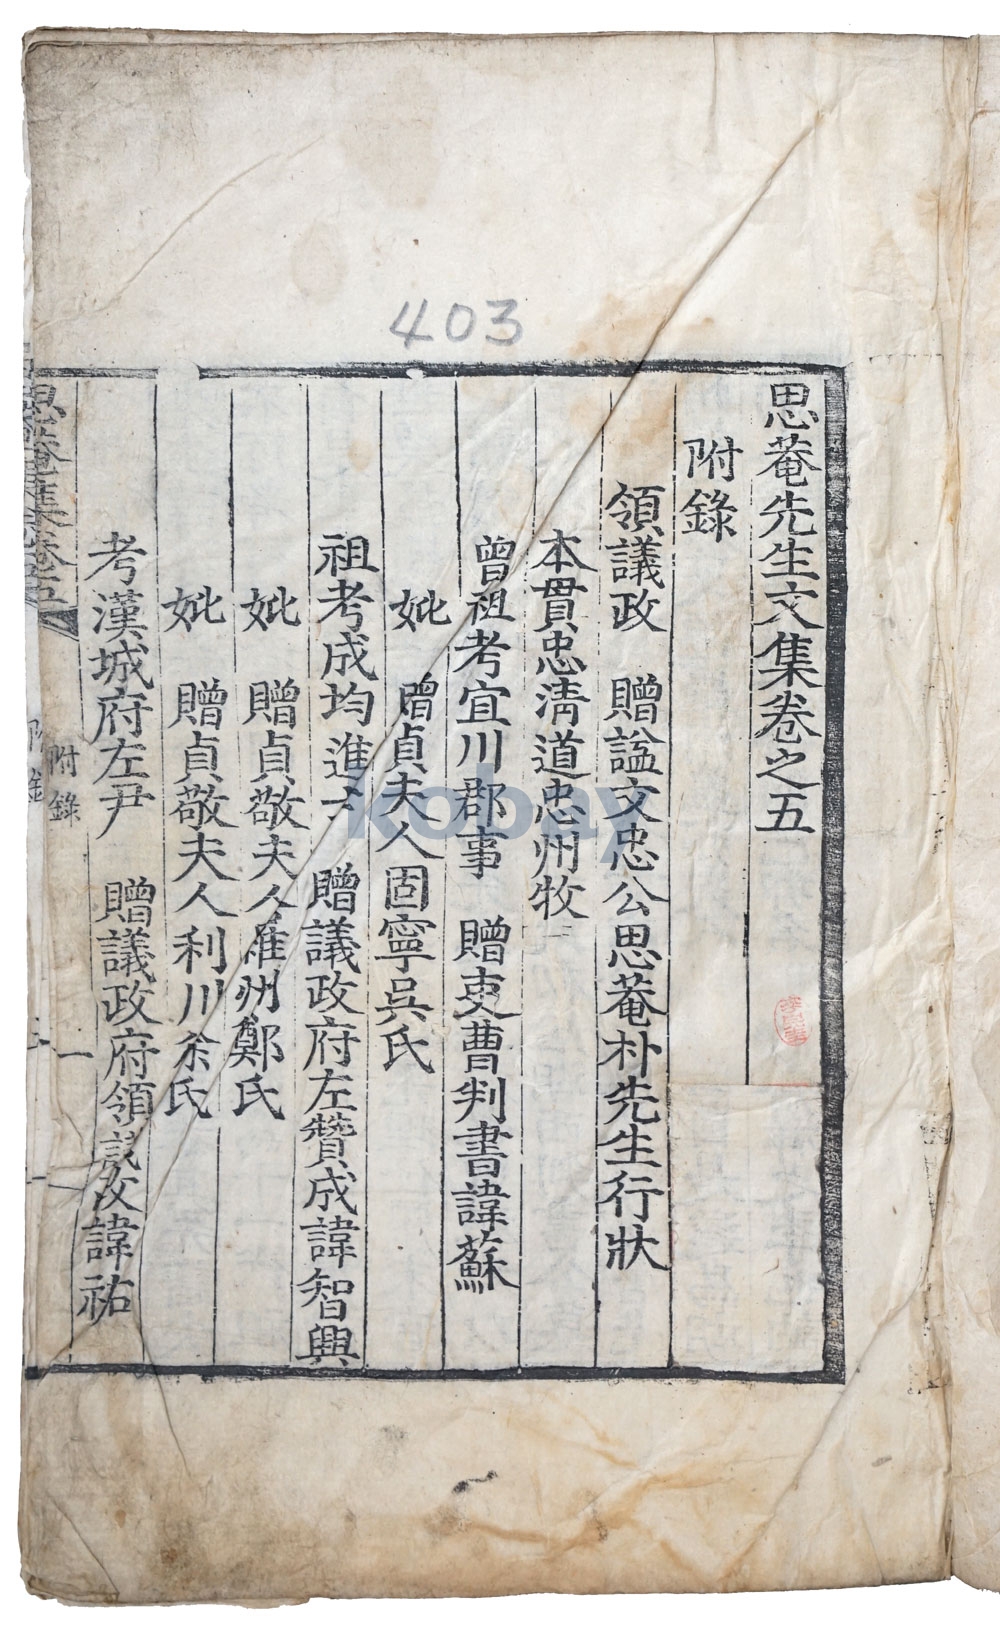 403
思菴先生文集卷之五
附錄
領議政 贈諡文忠公思菴朴先生行狀
本貫忠淸道忠州牧
曾祖考宜川郡事 贈吏曹判書諱蘇
妣 贈貞夫人固寧吳氏
祖考成均進士 贈議政府左贊成諱智興
妣 贈貞敬夫人羅州鄭氏
妣 贈貞敬夫人利川徐氏
考漢城府左尹 贈議政府領議政諱祐
思菴集卷五
附錄
一
kobay